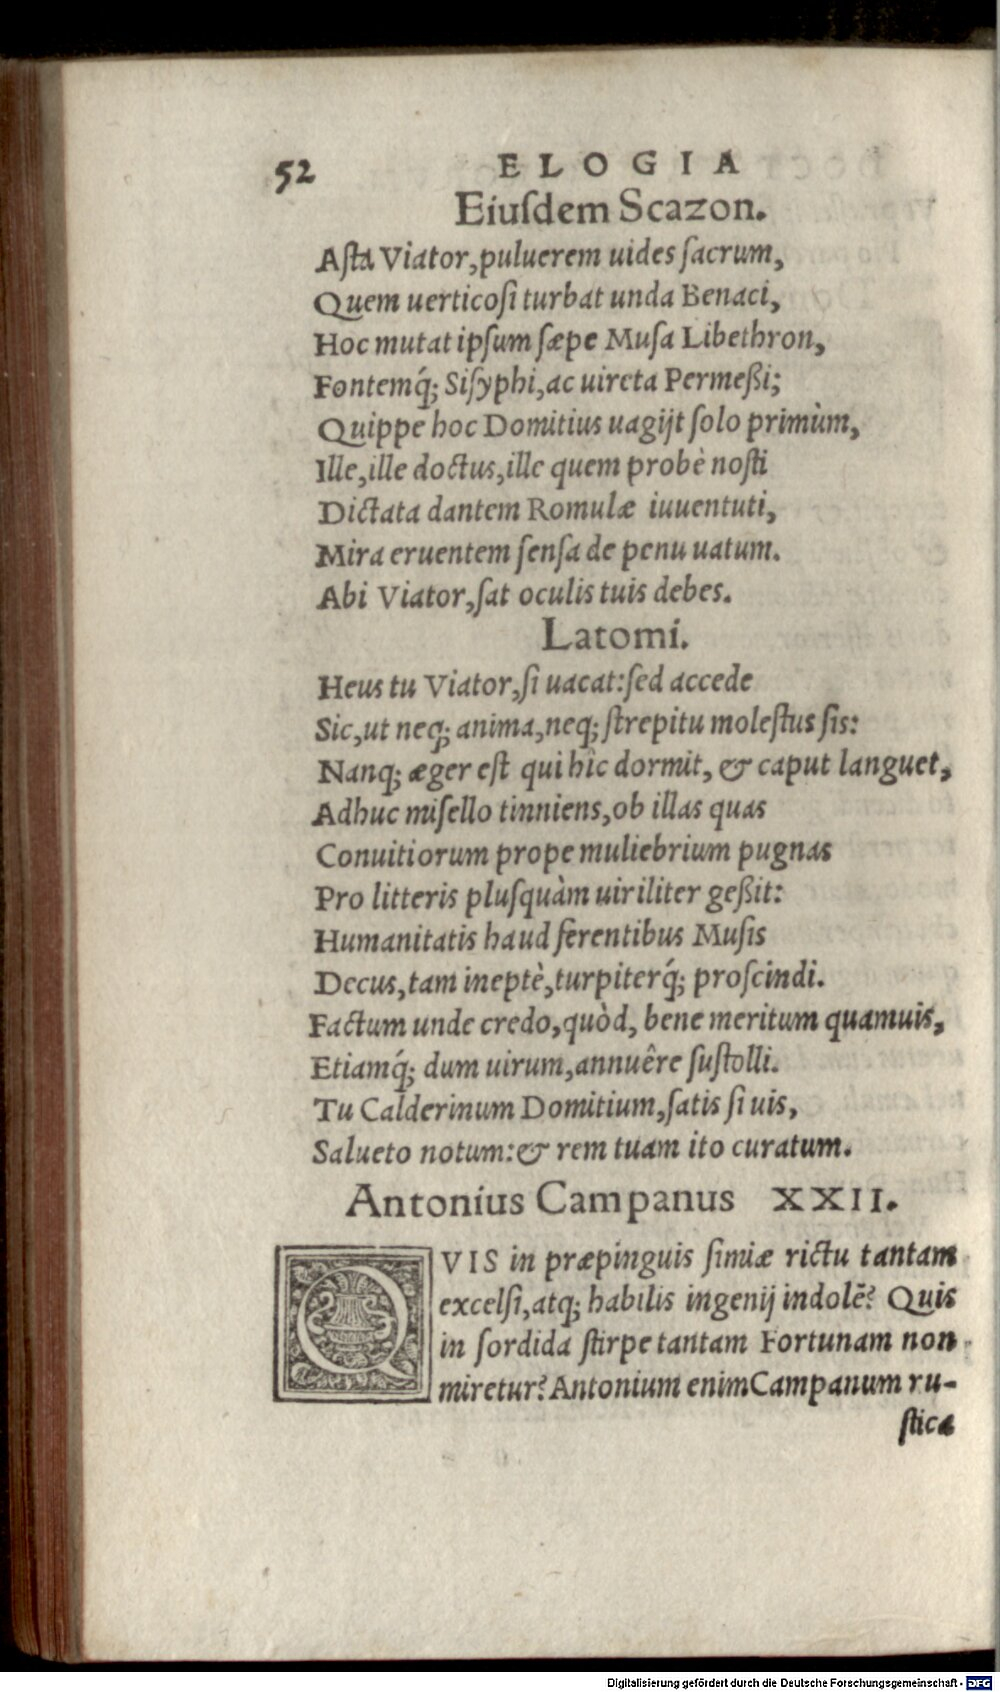 52 ELOGIA
Eiuſdem Scazon.
Aſta Viator, puluerem uides ſacrum,
Quem uerticoſi turbat unda Benaci,
Hoc mutat ipſum ſæpe Muſa Libethron,
Fontemq́; Siſyphi, ac uireta Permeßi;
Quippe hoc Domitius uagijt ſolo primùm,
Ille, ille doctus, ille quem probè noſti
Dictata dantem Romulæ iuuentuti,
Mira eruentem ſenſa de penu uatum.
Abi Viator, ſat oculis tuis debes.
Latomi.
Heus tu Viator, ſi uacat: ſed accede
Sic, ut neq; anima, neq; ſtrepitu moleſtus ſis:
Nanq; æger eſt qui hîc dormit, & caput languet,
Adhuc miſello tinniens, ob illas quas
Conuitiorum prope muliebrium pugnas
Pro litteris pluſquàm uiriliter geßit:
Humanitatis haud ferentibus Muſis
Decus, tam ineptè, turpiterq́; proſcindi.
Factum unde credo, quòd, bene meritum quamuis,
Etiamq́; dum uirum, annuêre ſuſtolli.
Tu Calderinum Domitium, ſatis ſi uis,
Salueto notum: & rem tuam ito curatum.
Antonius Campanus XXII.
QVIS in præpinguis ſimiæ rictu tantam
excelſi, atq; habilis ingenij indolẽ? Quis
in ſordida ſtirpe tantam Fortunam non
miretur? Antonium enim Campanum ru-
ſtica
Digitalisierung gefördert durch die Deutsche Forschungsgemeinschaft - DFG